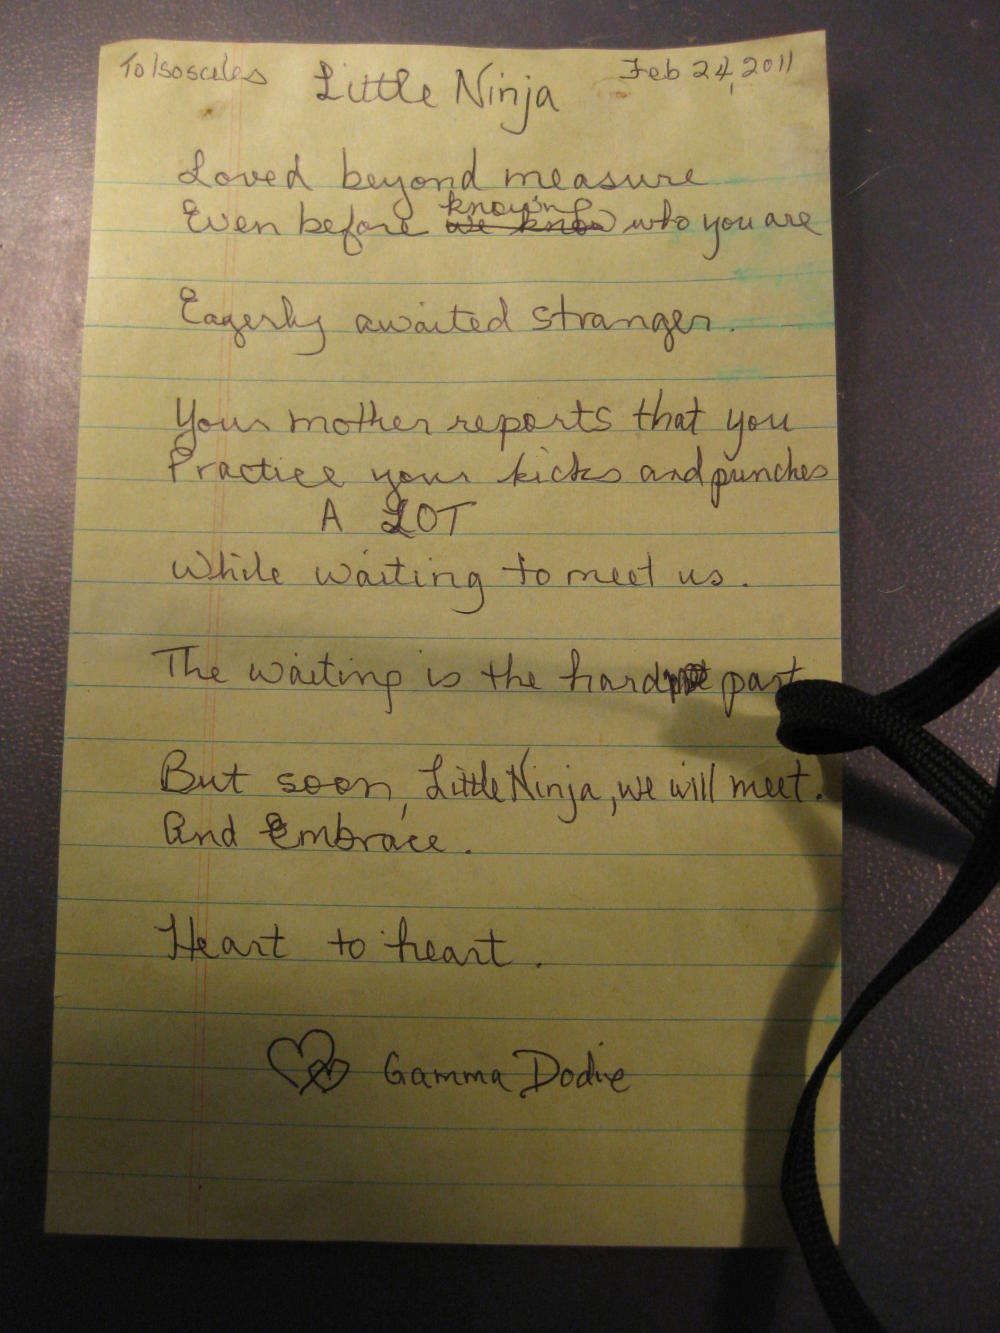 To Isosceles Little Ninja Feb 24, 2011
Loved beyond measure
knowing
Even before we know who you are
Eagerly awaited stranger.
Your mother reports that you
Practice your kicks and punches
A LOT
While waiting to meet us.
The waiting is the hard part
But soon, Little Ninja, we will meet.
And Embrace.
Heart to heart.
Gamma Dodie